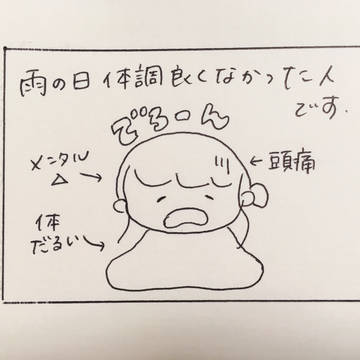 雨の日体調良くなかった人
です.
でろーん
メンタル
△
頭痛
体
だるい